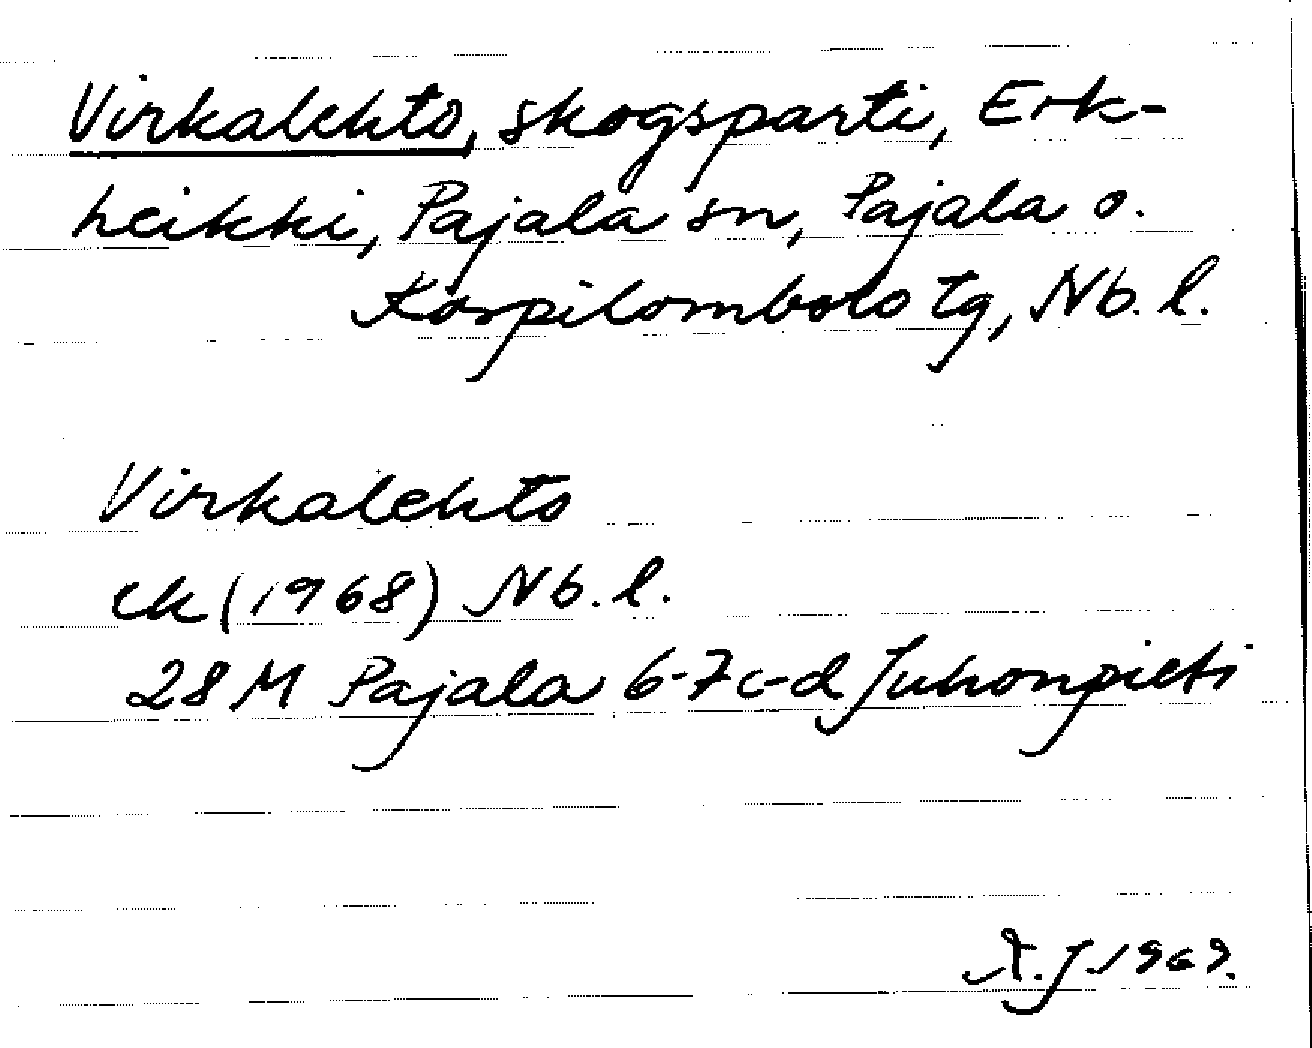 Virkalehto, skogsparti, Erk-
heikki, Pajala sn, Pajala o.
Korpilombolo tg, Nb. l.
Virkalehto
ek (1968) Nb. l.
28 M Pajala 6-7 c-d Juhonpieti
1969.